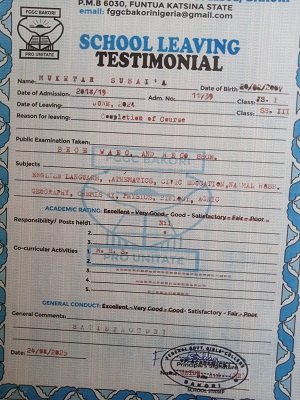 P.M.B 6030, FUNTUA KATSINA STATE
email: fggcbakorinigeria@gmail.com
FGGC BAKORI
PRO UNITATE
SCHOOL LEAVING
TESTIMONIAL
Name: MUKHTAR SUBAI'A Date of Birth
Date of Admission: 2018/19 Adm. No: 11/39 Class: JS. I
Date of Leaving: 2024 Class: SS. III
Reason for leaving: Completion of Course
Public Examination Taken:
BECE WAEC, AND NECO
Subjects
ENGLISH LANGUAGE, MATHEMATICS, CIVIC EDUCATION,
GEOGRAPHY, CHEMISTRY, PHYSICS, BIOLOGY, AGRIC
FGGC BAKORI
ACADEMIC RATING: Excellent - Very Good - Good - Satisfactory - Fair - Poor
Responsibility/ Posts held: 1.
2.
Co-curricular Activities: 1.
2.
3.
4.
PRO UNITATE
GENERAL CONDUCT: Excellent - Very Good - Good - Satisfactory - Fair - Poor
General Comments:
SATISFACTORY
Date:
FEDERAL GOVT. GIRLS' COLLEGE
Principal's Signature
BAKORI
SCHOOL STAMP